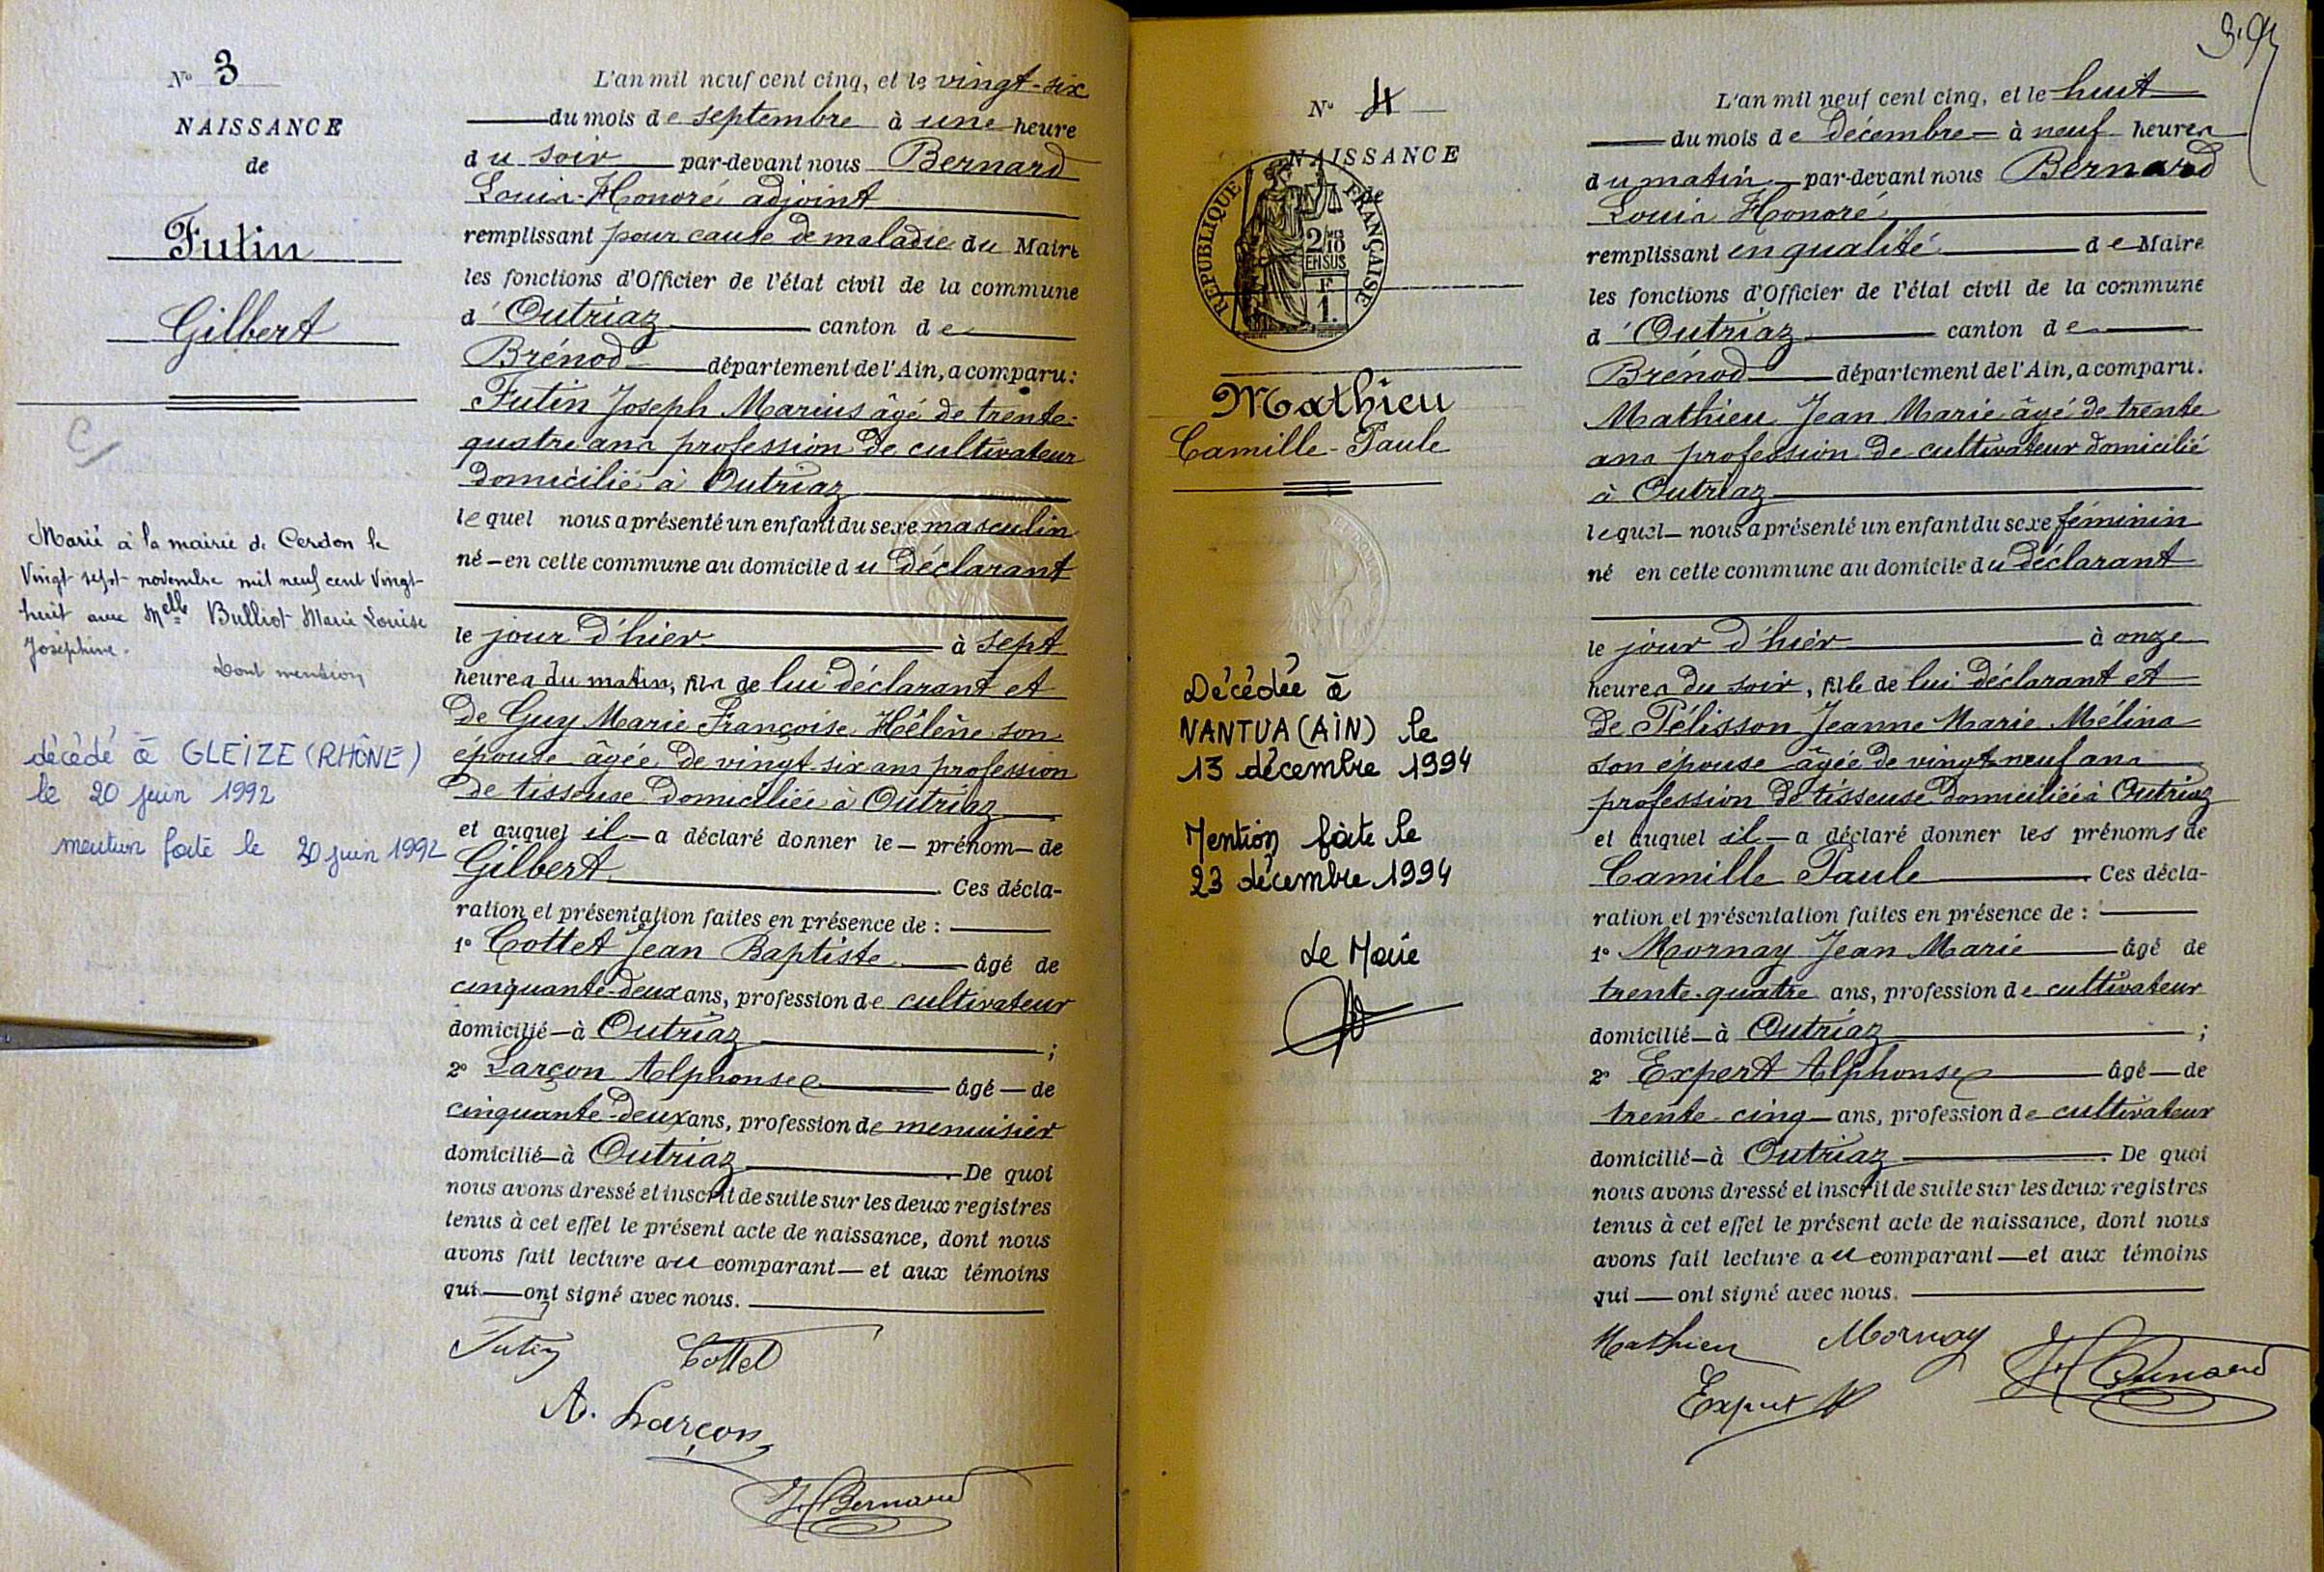 N° 3
NAISSANCE
de
Futin
Gilbert
Marié à la mairie de Cerdon le
Vingt sept novembre mil neuf cent vingt-
huit avec Melle Bulliot Marie Louise
Joséphine.
Dont mention
décédé à GLEIZE (RHÔNE)
le 20 juin 1992
mention faite le 20 juin 1992
L'an mil neuf cent cinq, et le vingt-six
du mois de septembre à une heure
du soir par-devant nous Bernard
Louis-Honoré adjoint
remplissant pour cause de maladie du Maire
les fonctions d'Officier de l'état civil de la commune
d'Outriaz canton de
Brénod département de l'Ain, a comparu:
Futin Joseph Marius âgé de trente-
quatre ans profession de cultivateur
domicilié à Outriaz
lequel nous a présenté un enfant du sexe masculin
né - en cette commune au domicile du déclarant
le jour d'hier à sept
heures du matin, fils de lui déclarant et
de Guy Marie Françoise Hélène son
épouse âgée de vingt six ans profession
de tisseuse domiciliée à Outriaz
et auquel il - a déclaré donner le - prénom - de
Gilbert. Ces décla-
ration et présentation faites en présence de :
1° Cottet Jean Baptiste âgé de
cinquante-deux ans, profession de cultivateur
domicilié - à Outriaz ;
2° Larçon Alphonse âgé - de
cinquante-deux ans, profession de menuisier
domicilié - à Outriaz. De quoi
nous avons dressé et inscrit de suite sur les deux registres
tenus à cet effet le présent acte de naissance, dont nous
avons fait lecture au comparant - et aux témoins
qui - ont signé avec nous.
Futin Cottet
A. Larçon
H Bernard
N° 4
NAISSANCE
de
RÉPUBLIQUE FRANÇAISE
2/10 MES
EN SUS
F
1.
Mathieu
Camille-Paule
Décédée à
NANTUA (AIN) le
13 décembre 1994
Mention faite le
23 décembre 1994
Le Maire
L'an mil neuf cent cinq, et le huit
du mois de décembre - à neuf heures
du matin - par-devant nous Bernard
Louis Honoré
remplissant en qualité de Maire
les fonctions d'Officier de l'état civil de la commune
d'Outriaz canton de
Brénod département de l'Ain, a comparu.
Mathieu Jean Marie âgé de trente
ans profession de cultivateur domicilié
à Outriaz
lequel - nous a présenté un enfant du sexe féminin
né en cette commune au domicile du déclarant
le jour d'hier à onze
heures du soir, fille de lui déclarant et
de Pélisson Jeanne Marie Mélina
son épouse âgée de vingt neuf ans
profession de tisseuse domiciliée à Outriaz
et auquel il - a déclaré donner les prénoms de
Camille Paule. Ces décla-
ration et présentation faites en présence de :
1° Mornay Jean Marie âgé de
trente-quatre ans, profession de cultivateur
domicilié - à Outriaz ;
2° Expert Alphonse âgé - de
trente-cinq - ans, profession de cultivateur
domicilié - à Outriaz. De quoi
nous avons dressé et inscrit de suite sur les deux registres
tenus à cet effet le présent acte de naissance, dont nous
avons fait lecture au comparant - et aux témoins
qui - ont signé avec nous.
Mathieu Mornay
Expert A
H Bernard